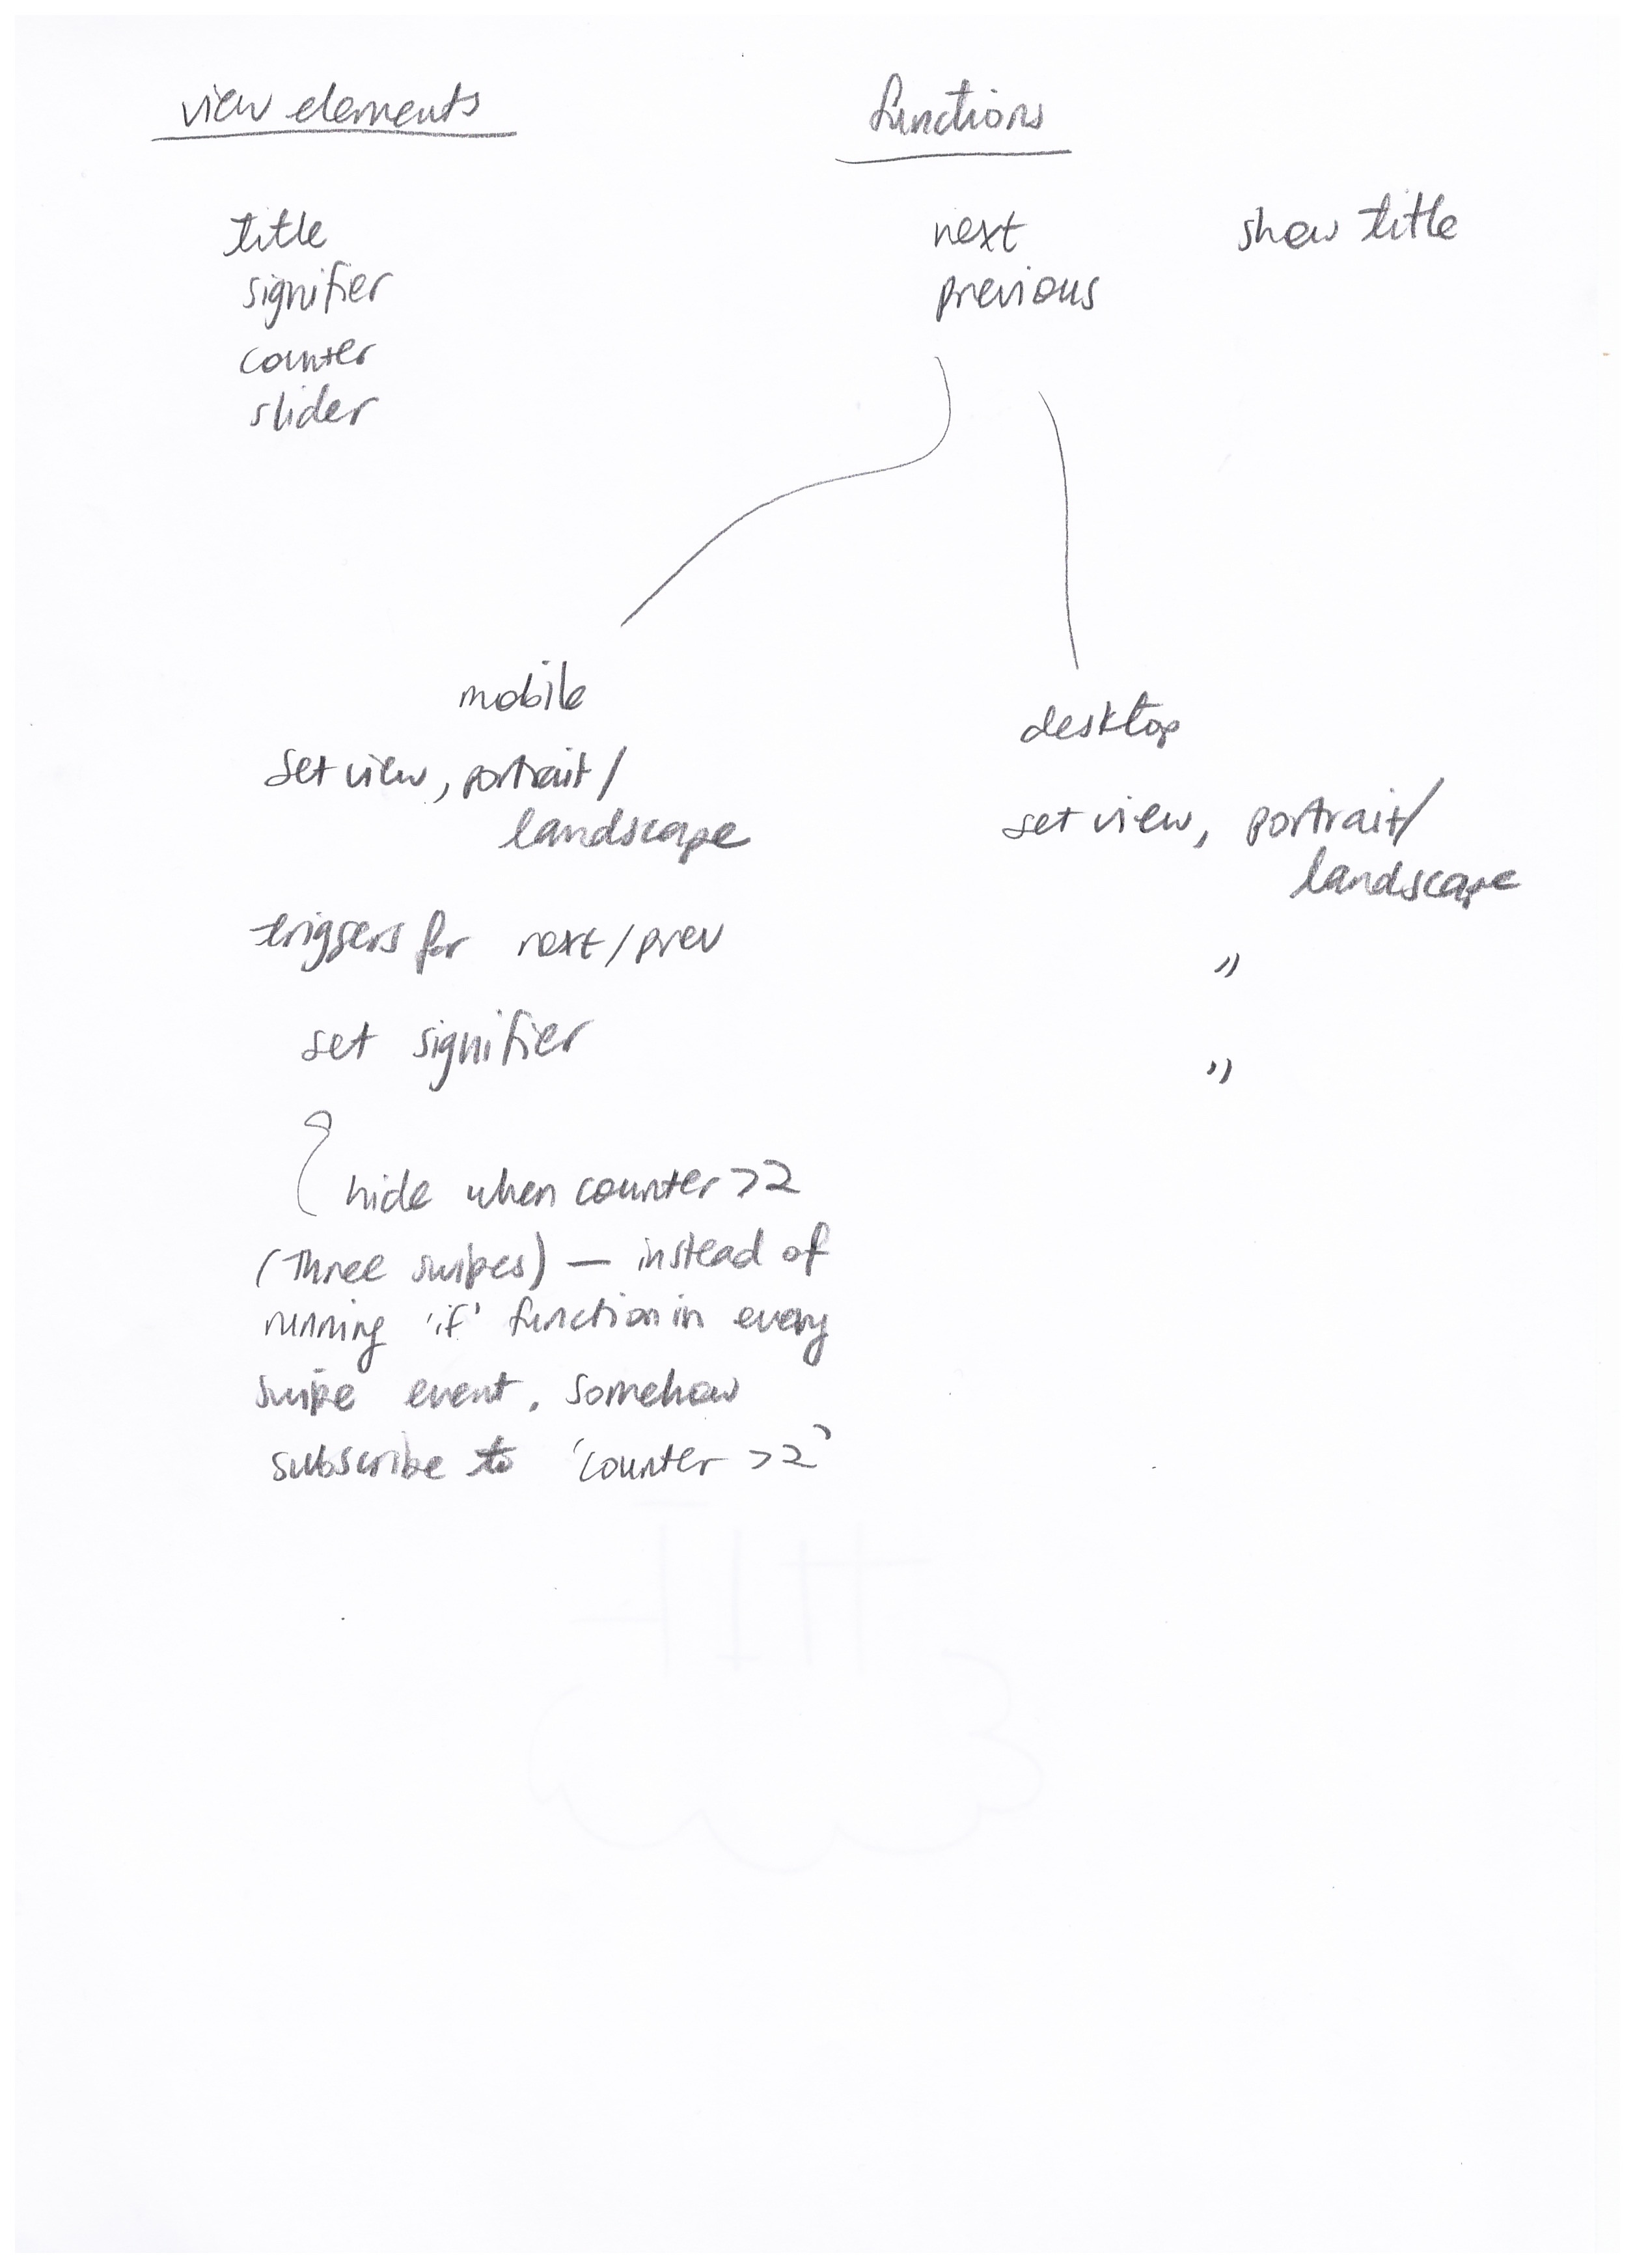 view elements
functions
title
signifier
counter
slider
next
previous
show title
mobile
set view, portrait/
landscape
triggers for next/prev
set signifier
hide when counter >2
(three swipes) — instead of
running 'if' function in every
swipe event. Somehow
subscribe to 'counter >2'
desktop
set view, portrait/
landscape
"
"